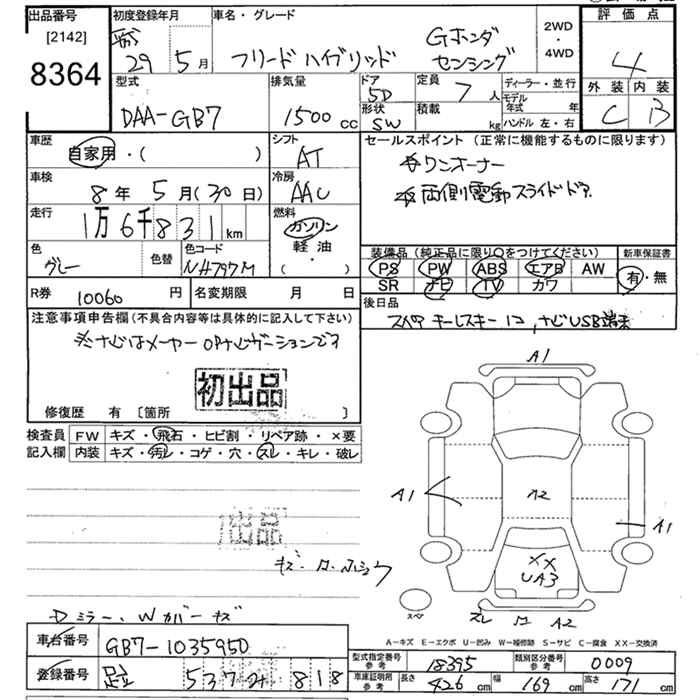 出品番号
[2142]
8364
初度登録年月
29 5月
車名・グレード
フリード ハイブリッド
Gホンダ
センシング
2WD
・
4WD
評価点
4
外装 内装
C B
型式
DAA-GB7
排気量
1500 cc
ドア
5D
形状
SW
定員
7 人
積載
kg
ディーラー・並行
モデル年式 年
ハンドル 左・右
車歴
自家用・( )
シフト
AT
セールスポイント (正常に機能するものに限ります)
ワンオーナー
両側電動スライドドア
車検
8年 5月(30日)
冷房
AAC
走行
1万6千831km
燃料
ガソリン
軽油・
( )
色
グレー
色替
色コード
NH797M
装備品(純正品に限り○をつけてください)
PS PW ABS エアB AW
SR ナビ TV カワ
新車保証書
有・無
R券 10060 円
名変期限 月 日
後日品
スペア キーレスキー 1コ, ナビUSB端末
注意事項申告欄(不具合内容等は具体的に記入して下さい)
※ナビはメーカーOPナビゲーションです
初出品
修復歴 有 〔箇所 〕
検査員記入欄
FW キズ・飛石・ヒビ割・リペア跡・×要
内装 キズ・汚レ・コゲ・穴・スレ・キレ・破レ
出品
Dミラー、Wカバーキズ
A1
A1
A2
A1
XX
UA3
スペア
スレ
A2
A-キズ E-エクボ U-凹み W-補修跡 S-サビ C-腐食 XX-交換済
車台番号 GB7-1035950
登録番号 足立 537 818
型式指定番号参考 18395
類別区分番号参考 0009
車庫証明用参考 長さ 426 cm 幅 169 cm 高さ 171 cm